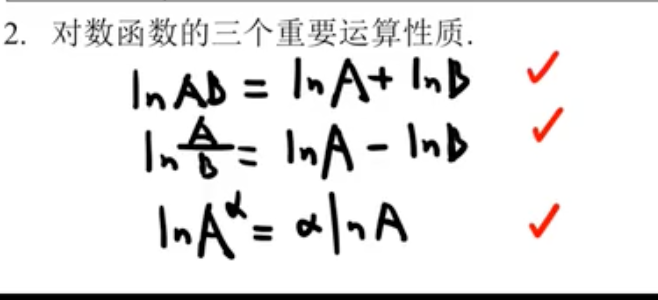 2. 对数函数的三个重要运算性质.
ln AB = lnA + lnB
ln A/B = lnA - lnB
lnA^α = α ln A